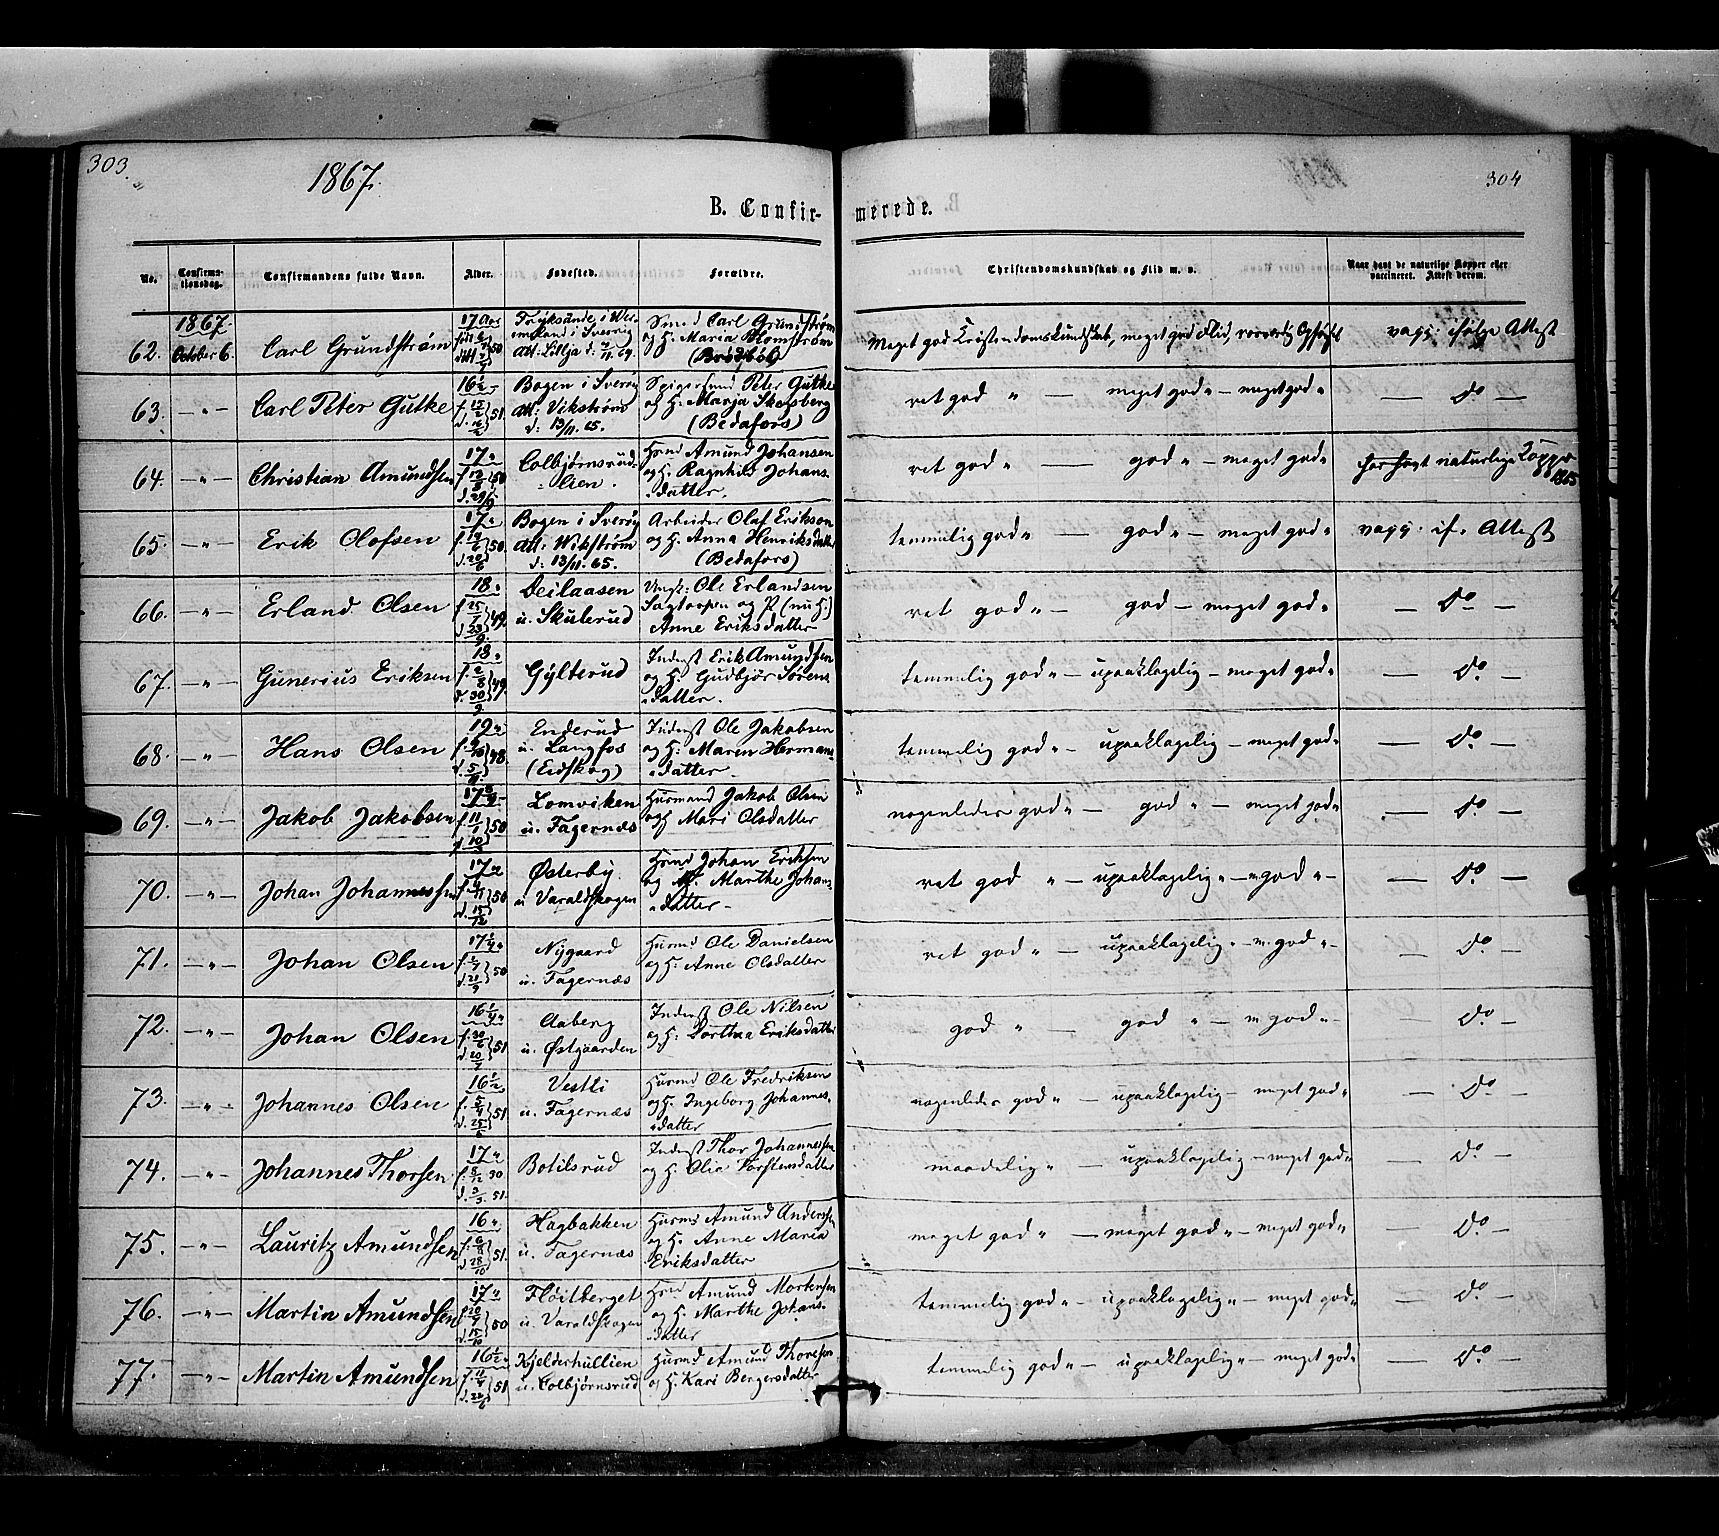 303.
1867.
304
B. Confir-
merede.
No.
Confirma-
tionsdag.
Confirmandens fulde Navn.
Alder.
Fødested.
Forældre.
Christendomskundskab og Flid m. v.
Naar havt de naturlige Kopper eller
vaccineret. Attest derom.
1867.
62. October 6. Carl Grundstrøm
17 Aar
Fryksände i Wer-
emland i Sverrig
Att: Lillja d.
Smed Carl Grundstrøm
og H. Maria Blomstrøm
Meget god Kristendomskundskab, meget god Flid,
vacc: ifølge Attest
63. — " — Carl Peter Gutke
16 1/2
f. 15/2 } 51.
Bogen i Sverig
Att: Vikström
d: 13/11. 65.
Peter Gutke
og H. Marja Skogsberg
(Bedafors)
ret god " — meget god " — meget god "
— do —
64. — " — Christian Amundsen
17 "
Colbjørnsrud-
lien.
Hmd Amund Johansen
og H. Ragnhild Johans-
datter.
ret god " — god " — meget god "
har havt naturlige Kopper
1865
65. — " — Erik Olofsen
17 "
Bogen i Sverig
Att: Wikström
d: 13/11. 65.
Arbeider Olaf Erikson
og H. Anna Henriksdatter
(Bedafors)
temmelig god " — god " — meget god "
vacc. if. Attest
66. — " — Erland Olsen
18 "
Deilaasen
u. Skulerud
Ungk: Ole Erlandsen
og P (nu H.)
Anne Eriksdatter
ret god " — god — meget god "
— do —
67. — " — Gunerius Eriksen
18 "
Gylterud
Inderst Erik Amundsen
og H. Gudbjør Sørens-
datter.
temmelig god " — upaaklagelig — meget god "
— do —
68. — " — Hans Olsen
19 "
Enderud
u. Langfos
(Eidskog)
Inderst Ole Jakobsen
og H: Maren Herman-
datter.
temmelig god " — upaaklagelig — meget god "
— do —
69. — " — Jakob Jakobsen
17 3/4
Lomviken
u. Fagernæs
Husmand Jakob Olsen
og H Mari Olsdatter
nogenledes god " — god " — meget god "
— do —
70. — " — Johan Johannessen
17 "
Østerby
u. Varaldskogen
Hsmd Johan Eriksen
og H. Marthe Johan-
datter
ret god " — upaaklagelig " — m. god " —
— do —
71. — " — Johan Olsen
17 1/4 "
Nygaard
u. Fagernæs
Husmd Ole Danielsen
og H: Anne Olsdatter
ret god " — upaaklagelig " — m. god " —
— do —
72. — " — Johan Olsen
16 1/4 "
f. 20/6 } 51
Aaberg
u. Østgaarden
Inderst Ole Nilsen
og H: Dorthea Eriksdatter
god " — god " — m god " —
— do —
73. — " — Johannes Olsen
16 1/2
Vestli
u. Fagernæs
Husmd Ole Fredriksen
og H. Ingeborg Johannes-
datter
nogenledes god " — upaaklagelig — meget god "
— do —
74. — " — Johannes Thorsen
17 "
Botilsrud
Inderst Thor Johannessen
og H. Olia Torstensdatter
maadelig " — upaaklagelig — meget god "
— do —
75. — " — Lauritz Amundsen
16 "
f. 6/8
d. 28/10 } 51.
Hagbakken
u. Fagernæs
Husmd Amund Andersen
og H. Anne Maria
Eriksdatter
meget god " — meget god " — meget god "
— do —
76. — " — Martin Amundsen
17 "
Fløitberget
u. Varaldskogen
Hsmd Amund Mortensen
og H. Marthe Johans-
datter
temmelig god " — upaaklagelig " — meget god "
— do —
77. — " — Martin Amundsen
16 1/2
Kjelderhullien
u. Colbjørnsrud
Husmd Amund Thoresen
og H. Kari Bergersdatter
temmelig god " — upaaklagelig " — meget god "
— do —